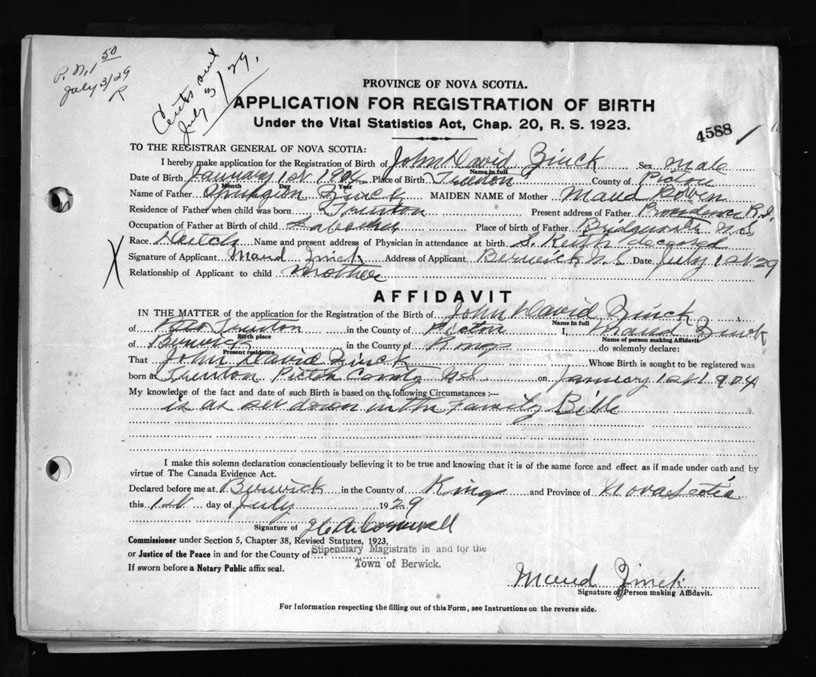 P.N. 1 50
July 3/29
R
July 3/29,
PROVINCE OF NOVA SCOTIA.
APPLICATION FOR REGISTRATION OF BIRTH
Under the Vital Statistics Act, Chap. 20, R. S. 1923.
4588
TO THE REGISTRAR GENERAL OF NOVA SCOTIA:
I hereby make application for the Registration of Birth of John David Zinck Sex male
Name in full
Date of Birth January 1st 1904 Place of Birth Trenton County of Pictou
Month Day Year
Name of Father Zinck MAIDEN NAME of Mother Maud
Residence of Father when child was born Trenton Present address of Father Providence R.I.
Occupation of Father at Birth of child Labourer Place of birth of Father Bridgewater N.S
Race Name and present address of Physician in attendance at birth S. Keith deceased
X Signature of Applicant Maud Zinck Address of Applicant Berwick N.S Date July 1st 29
Relationship of Applicant to child Mother
AFFIDAVIT
IN THE MATTER of the application for the Registration of the Birth of John David Zinck
Name in full
of Trenton in the County of Picton I, Maud Zinck
Birth place Name of person making Affidavit
of Berwick in the County of Kings do solemnly declare:
Present residence
That John David Zinck Whose Birth is sought to be registered was
born at Trenton Pictou County N.S. on January 1st 1904
My knowledge of the fact and date of such Birth is based on the following Circumstances :—
is as set down in the Family Bible
I make this solemn declaration conscientiously believing it to be true and knowing that it is of the same force and effect as if made under oath and by
virtue of The Canada Evidence Act.
Declared before me at Berwick in the County of Kings and Province of Nova Scotia
this 1st day of July 1929
Signature of
Commissioner under Section 5, Chapter 38, Revised Statutes, 1923,
or Justice of the Peace in and for the County of Stipendiary Magistrate in and for the
Town of Berwick.
If sworn before a Notary Public affix seal.
Maud Zinck
Signature of Person making Affidavit.
For Information respecting the filling out of this Form, see Instructions on the reverse side.